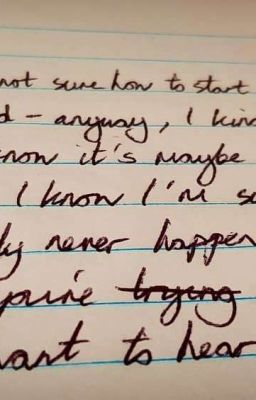 not sure how to start
d - anyway, I kin
know it's maybe
I know I'm s
ly never happen
you're trying
want to hear